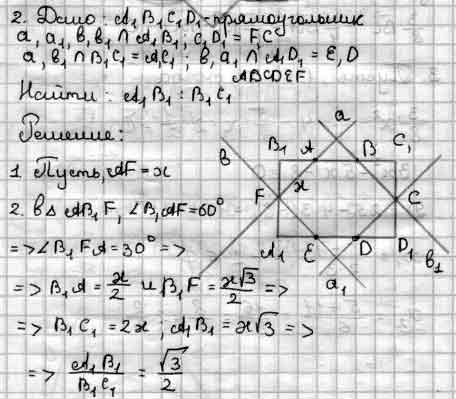 2. Дано: A₁B₁C₁D₁ - прямоугольник
a, a₁, в, в₁ ∩ A₁B₁; C₁D₁ = F, C
a, в₁ ∩ B₁C₁ = A, C₁; в, a₁ ∩ A₁D₁ = E, D
ABCDEF
Найти: A₁B₁ : B₁C₁
Решение:
1. Пусть, AF = x
2. в Δ AB₁F, ∠B₁AF = 60°
=> ∠B₁FA = 30° =>
=> B₁A = x/2 и B₁F = x√3/2 =>
=> B₁C₁ = 2x ; A₁B₁ = x√3 =>
=> A₁B₁/B₁C₁ = √3/2
a
в
B₁ A B C₁
F x C
A₁ E D D₁
a₁ в₁